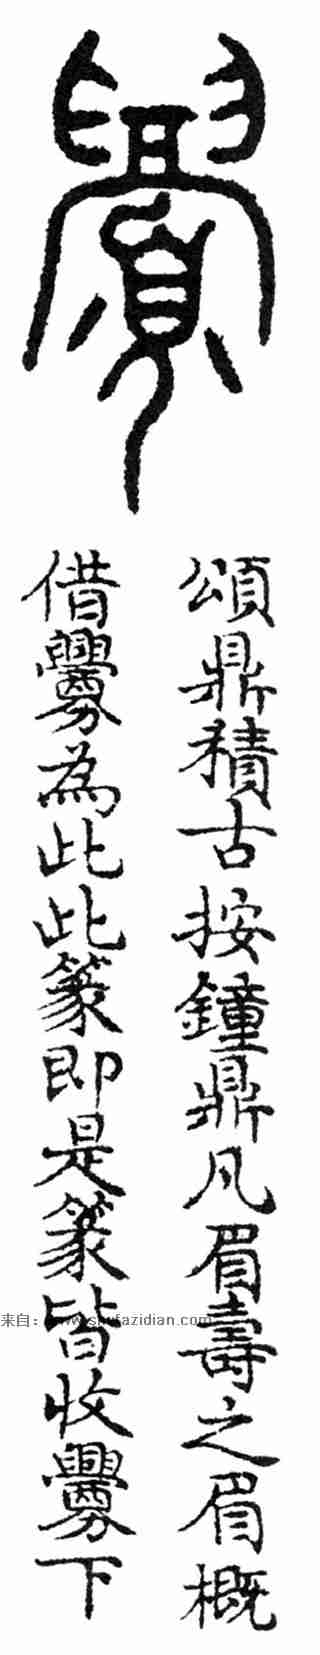 頌鼎積古按鐘鼎凡眉壽之眉概
借釁為此此篆即是篆皆收釁下
来自：www.shufazidian.com